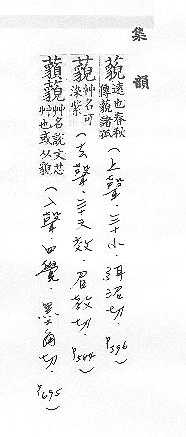 集韻
藐 遠也春秋傳藐諸孤 (上聲·三十小·弭沼切·P396)
藐 艸名可染紫 (去聲·三十六效·眉教切·P584)
藐 艸名說文茈艸也或从貌 (入聲·四覺·墨角切·P695)